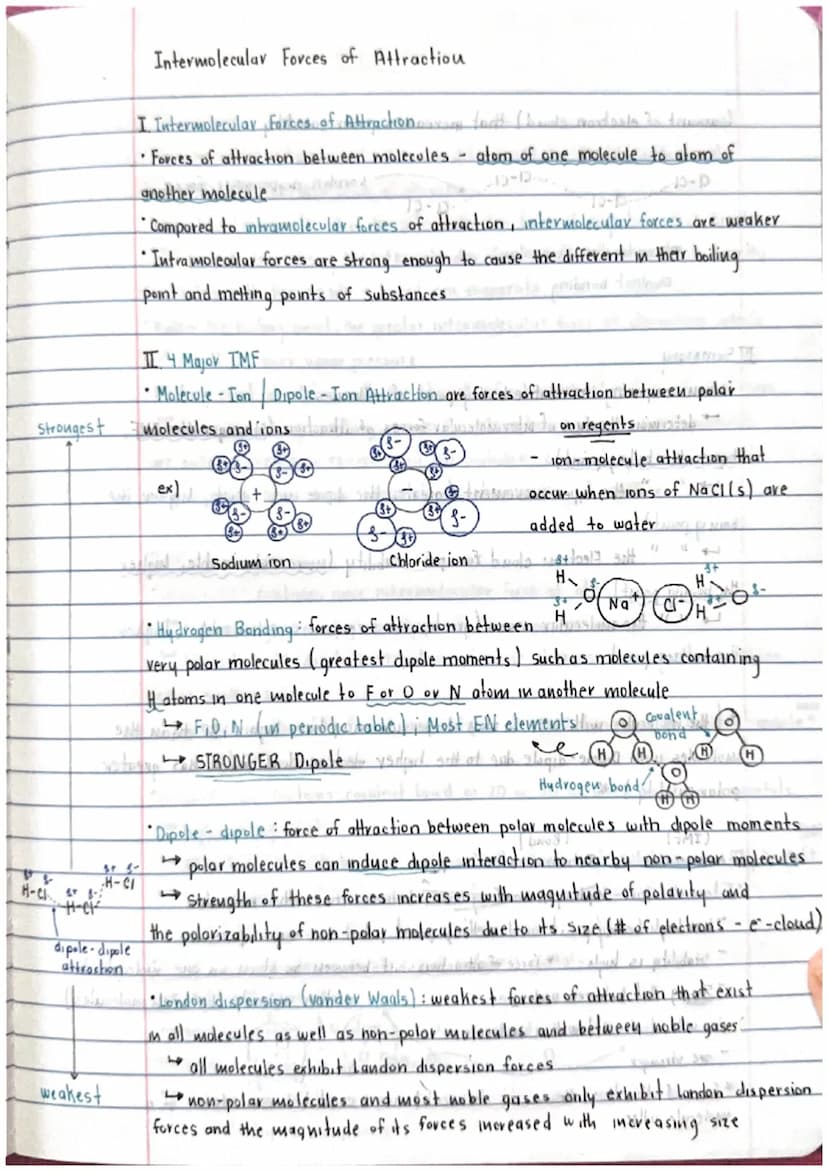 Intermolecular Forces of Attraction
I. Intermolecular Forces of Attraction
• Forces of attraction between molecules - atom of one molecule to atom of
another molecule
• Compared to intramolecular forces of attraction, intermolecular forces are weaker
• Intramolecular forces are strong enough to cause the different in their boiling
point and melting points of substances
II. 4 Major IMF
• Molecule-Ion / Dipole-Ion Attraction are forces of attraction between polar
strongest
molecules and ions
on regents
ex)
δ+ δ- δ+ δ- δ+ δ+ + δ+ δ- δ+ δ- δ+ δ+
δ- δ+ δ+ δ+ δ- δ+ - δ+ δ+ δ+ δ- δ+ δ-
- ion-molecule attraction that
occur when ions of NaCl(s) are
added to water
Sodium ion
Chloride ion
δ+ H δ- O δ+ H Na+ Cl- δ+ H δ+ H O δ-
• Hydrogen Bonding: forces of attraction between
very polar molecules (greatest dipole moments) such as molecules containing
H atoms in one molecule to F or O or N atom in another molecule
↳ F,O,N (in periodic table); Most EN elements
↳ STRONGER Dipole
O covalent bond O
H H H H
O
Hydrogen bond
H H
• Dipole-dipole: force of attraction between polar molecules with dipole moments
↳ polar molecules can induce dipole interaction to nearby non-polar molecules
δ+ δ- H-Cl δ+ δ- H-Cl δ+ δ- H-Cl
↳ strength of these forces increases with magnitude of polarity and
the polorizability of non-polar molecules due to its size (# of electrons - e⁻-cloud)
dipole-dipole
attraction
• London dispersion (vander Waals): weakest forces of attraction that exist
in all molecules as well as non-polar molecules and between noble gases
↳ all molecules exhibit London dispersion forces
weakest
↳ non-polar molecules and most noble gases only exhibit london dispersion
forces and the magnitude of its forces increased with increasing size